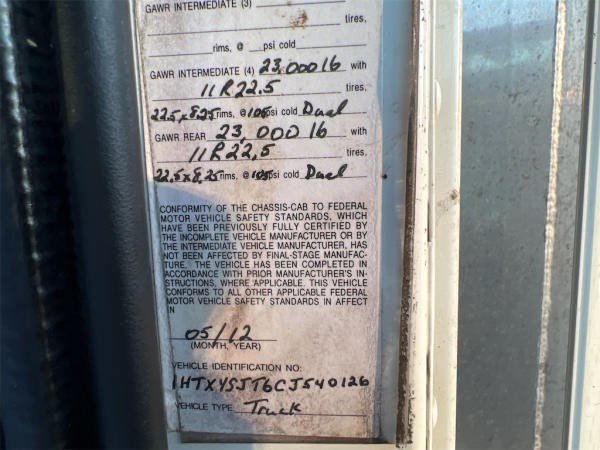 GAWR INTERMEDIATE (3)
tires,
rims, @ psi cold
GAWR INTERMEDIATE (4) 23,000 16 with
11R22.5 tires,
22.5x8.25 rims, @ 105 psi cold Dual
GAWR REAR 23,000 16 with
11R22,5 tires,
22.5x8.25 rims, @ 105 psi cold Dual
CONFORMITY OF THE CHASSIS-CAB TO FEDERAL
MOTOR VEHICLE SAFETY STANDARDS, WHICH
HAVE BEEN PREVIOUSLY FULLY CERTIFIED BY
THE INCOMPLETE VEHICLE MANUFACTURER OR BY
THE INTERMEDIATE VEHICLE MANUFACTURER, HAS
NOT BEEN AFFECTED BY FINAL-STAGE MANUFAC-
TURE. THE VEHICLE HAS BEEN COMPLETED IN
ACCORDANCE WITH PRIOR MANUFACTURER'S IN-
STRUCTIONS, WHERE APPLICABLE. THIS VEHICLE
CONFORMS TO ALL OTHER APPLICABLE FEDERAL
MOTOR VEHICLE SAFETY STANDARDS IN AFFECT
N
05/12
(MONTH, YEAR)
VEHICLE IDENTIFICATION NO:
1HTXYSJT6CJ540126
VEHICLE TYPE Truck